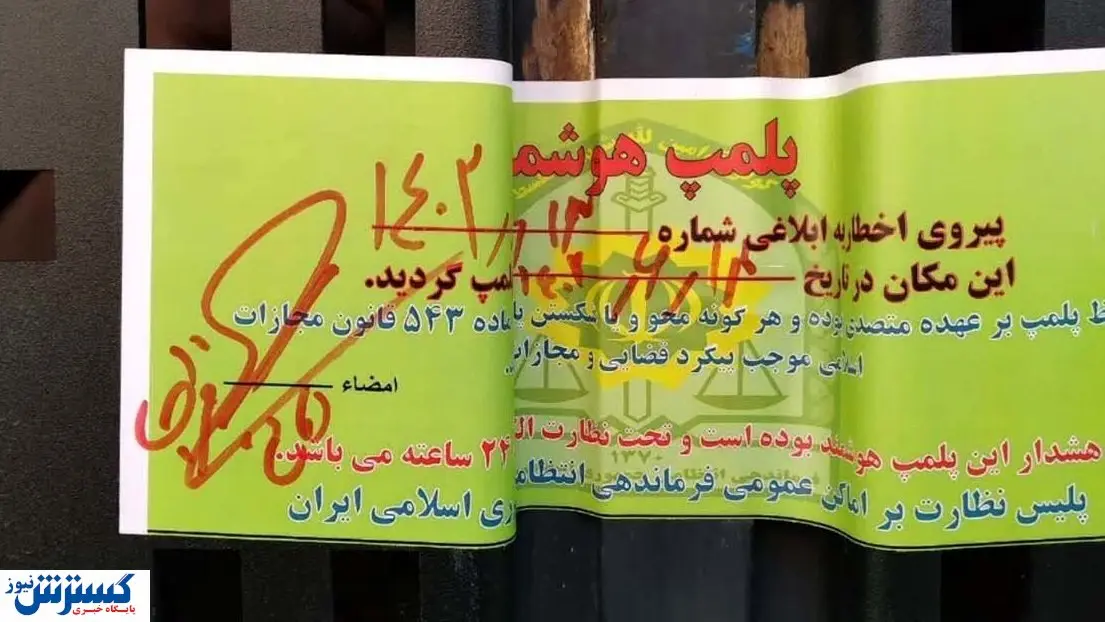 پلمپ هوشمـ
پیروی اخطاریه ابلاغی شماره ۱۴۰۲/ /۱۳
این مکان در تاریخ ۱۴۰۲/۶/۱۲ لمپ گردید.
ظ پلمپ بر عهده متصدی بوده و هر گونه محو و یا شکستن پلـ ماده ۵۴۳ قانون مجازات
اسلامی موجب پیگرد قضایی و مجازات
امضاء
هشدار این پلمپ هوشمند بوده است و تحت نظارت الکـ ۲۴ ساعته می باشد.
پلیس نظارت بر اماکن عمومی فرماندهی انتظامـ ری اسلامی ایران
۱۳۷۰
گسترش نیوز
پایگاه خبری